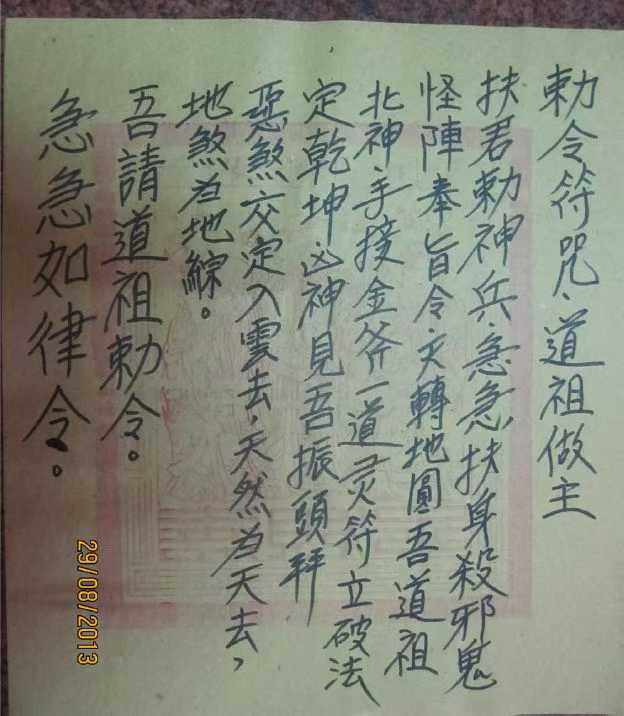 勅令符咒、道祖做主
扶君勅神兵、急急扶身殺邪鬼
怪陣奉旨令、天轉地圓吾道祖
北神、手接金斧一道灵符立破法
定乾坤凶神見吾振頭拜
惡煞交定入雲去,天然為天去,
地煞為地綜。
吾請道祖勅令。
急急如律令。
29/08/2013